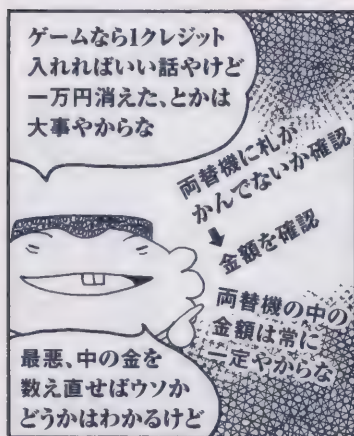 ゲームなら1クレジット
入れればいい話やけど
一万円消えた、とかは
大事やからな
両替機に札が
かんでないか確認
↓
金額を確認
両替機の中の
金額は常に
一定やからな
最悪、中の金を
数え直せばウソか
どうかはわかるけど